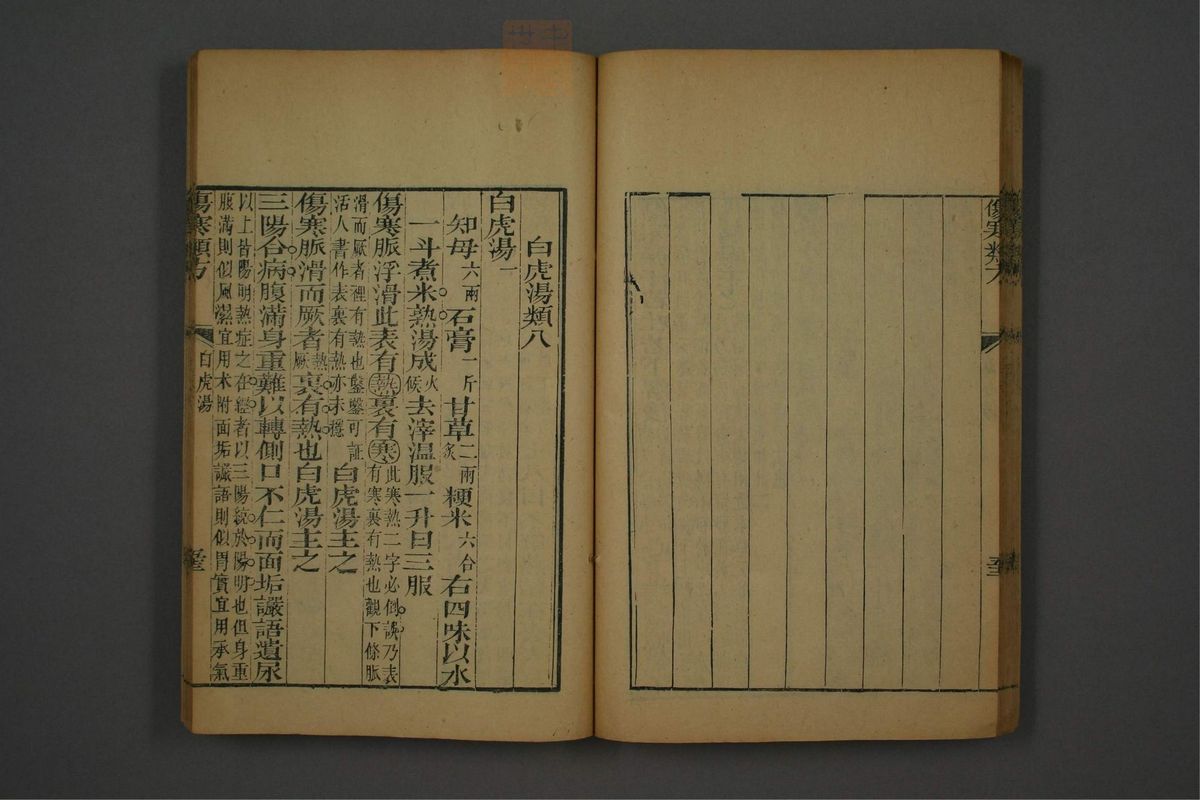 傷寒類方
白虎湯類八
白虎湯一
知母六兩石膏一斤甘草二兩炙粳米六合右四味以水
一斗煮米熟湯成火候去滓温服一升日三服
傷寒脈浮滑此表有熱裏有寒此寒熱二字必倒誤乃表有寒裏有熱也觀下條脈
滑而厥者裡有熱也鑿鑿可証活人書作表裏有熱亦未穩白虎湯主之
傷寒脈滑而厥者熱厥裏有熱也白虎湯主之
三陽合病腹滿身重難以轉側口不仁而面垢讝語遺尿
以上皆陽明熱症之在經者以三陽統於陽明也但身重
腹滿則似風濕宜用朮附面垢讝語則似胃實宜用承氣
傷寒類方 白虎湯